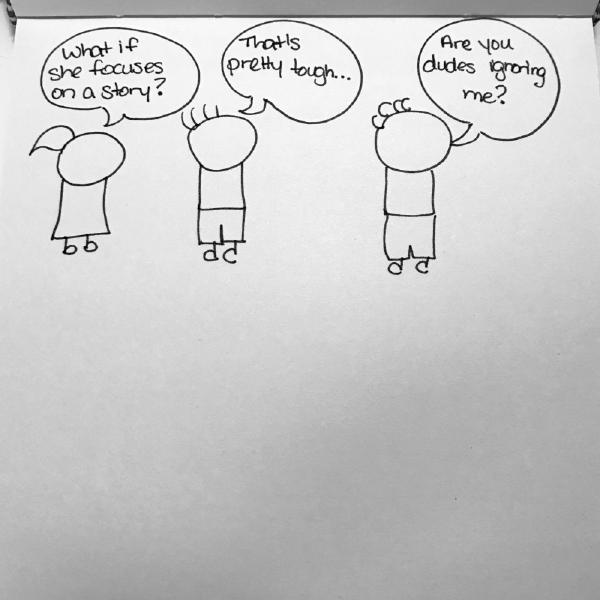 What if
she focuses
on a story?
That's
pretty tough...
Are you
dudes ignoring
me?